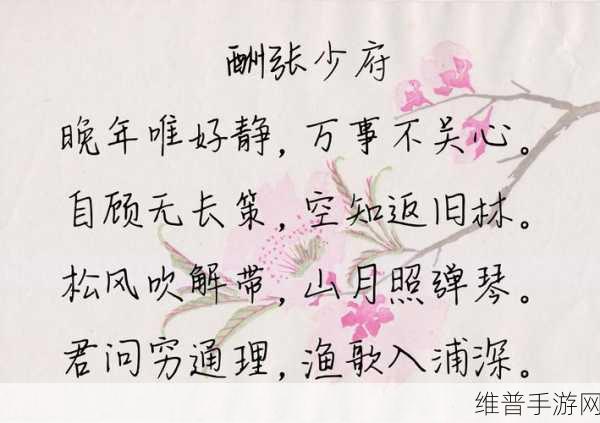 酬张少府
晚年唯好静，万事不关心。
自顾无长策，空知返旧林。
松风吹解带，山月照弹琴。
君问穷通理，渔歌入浦深。
维普手游网